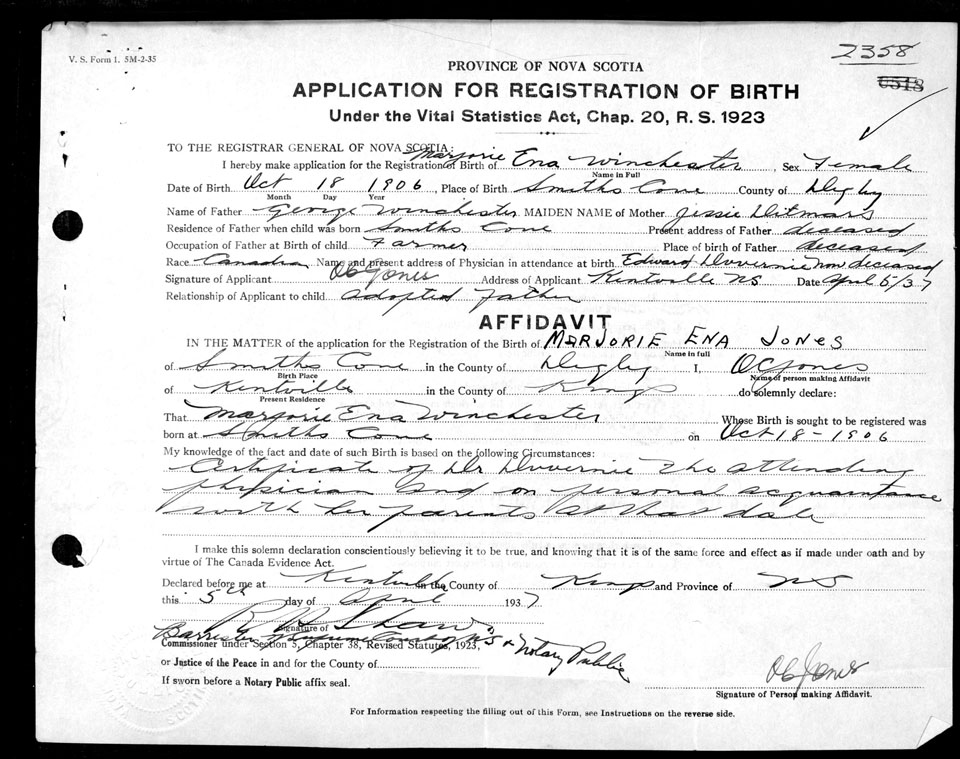 V. S. Form 1. 5M-2-35
2358
PROVINCE OF NOVA SCOTIA
APPLICATION FOR REGISTRATION OF BIRTH
Under the Vital Statistics Act, Chap. 20, R. S. 1923
TO THE REGISTRAR GENERAL OF NOVA SCOTIA:
I hereby make application for the Registration of Birth of Marjorie Ena Winchester, Sex Female
Name in Full
Date of Birth Oct 18 1906, Place of Birth Smiths Cove County of Digby
Month Day Year
Name of Father George Winchester MAIDEN NAME of Mother Jessie Ditmars
Residence of Father when child was born Smiths Cove Present address of Father deceased
Occupation of Father at Birth of child Farmer Place of birth of Father deceased
Race Canadian Name and present address of Physician in attendance at birth Edward Duvernie now deceased
Signature of Applicant OC Jones Address of Applicant Kentville NS Date April 5/37
Relationship of Applicant to child adopted Father
AFFIDAVIT
IN THE MATTER of the application for the Registration of the Birth of MARJORIE ENA JONES
Name in full
of Smiths Cove in the County of Digby I, OC Jones
Birth Place Name of person making Affidavit
of Kentville in the County of Kings do solemnly declare:
Present Residence
That Marjorie Ena Winchester Whose Birth is sought to be registered was
born at Smiths Cove on Oct 18 - 1906
My knowledge of the fact and date of such Birth is based on the following Circumstances:
Certificate of Dr Duvernie the attending
physician and on personal acquantance
with her parents at that date
I make this solemn declaration conscientiously believing it to be true, and knowing that it is of the same force and effect as if made under oath and by
virtue of The Canada Evidence Act.
Declared before me at Kentville in the County of Kings and Province of NS
this 5th day of April 1937
Signature of Shaw
Barrister of Supreme Court of N.S & Notary Public
Commissioner under Section 5, Chapter 38, Revised Statutes, 1923,
or Justice of the Peace in and for the County of
If sworn before a Notary Public affix seal.
OC Jones
Signature of Person making Affidavit.
For Information respecting the filling out of this Form, see Instructions on the reverse side.